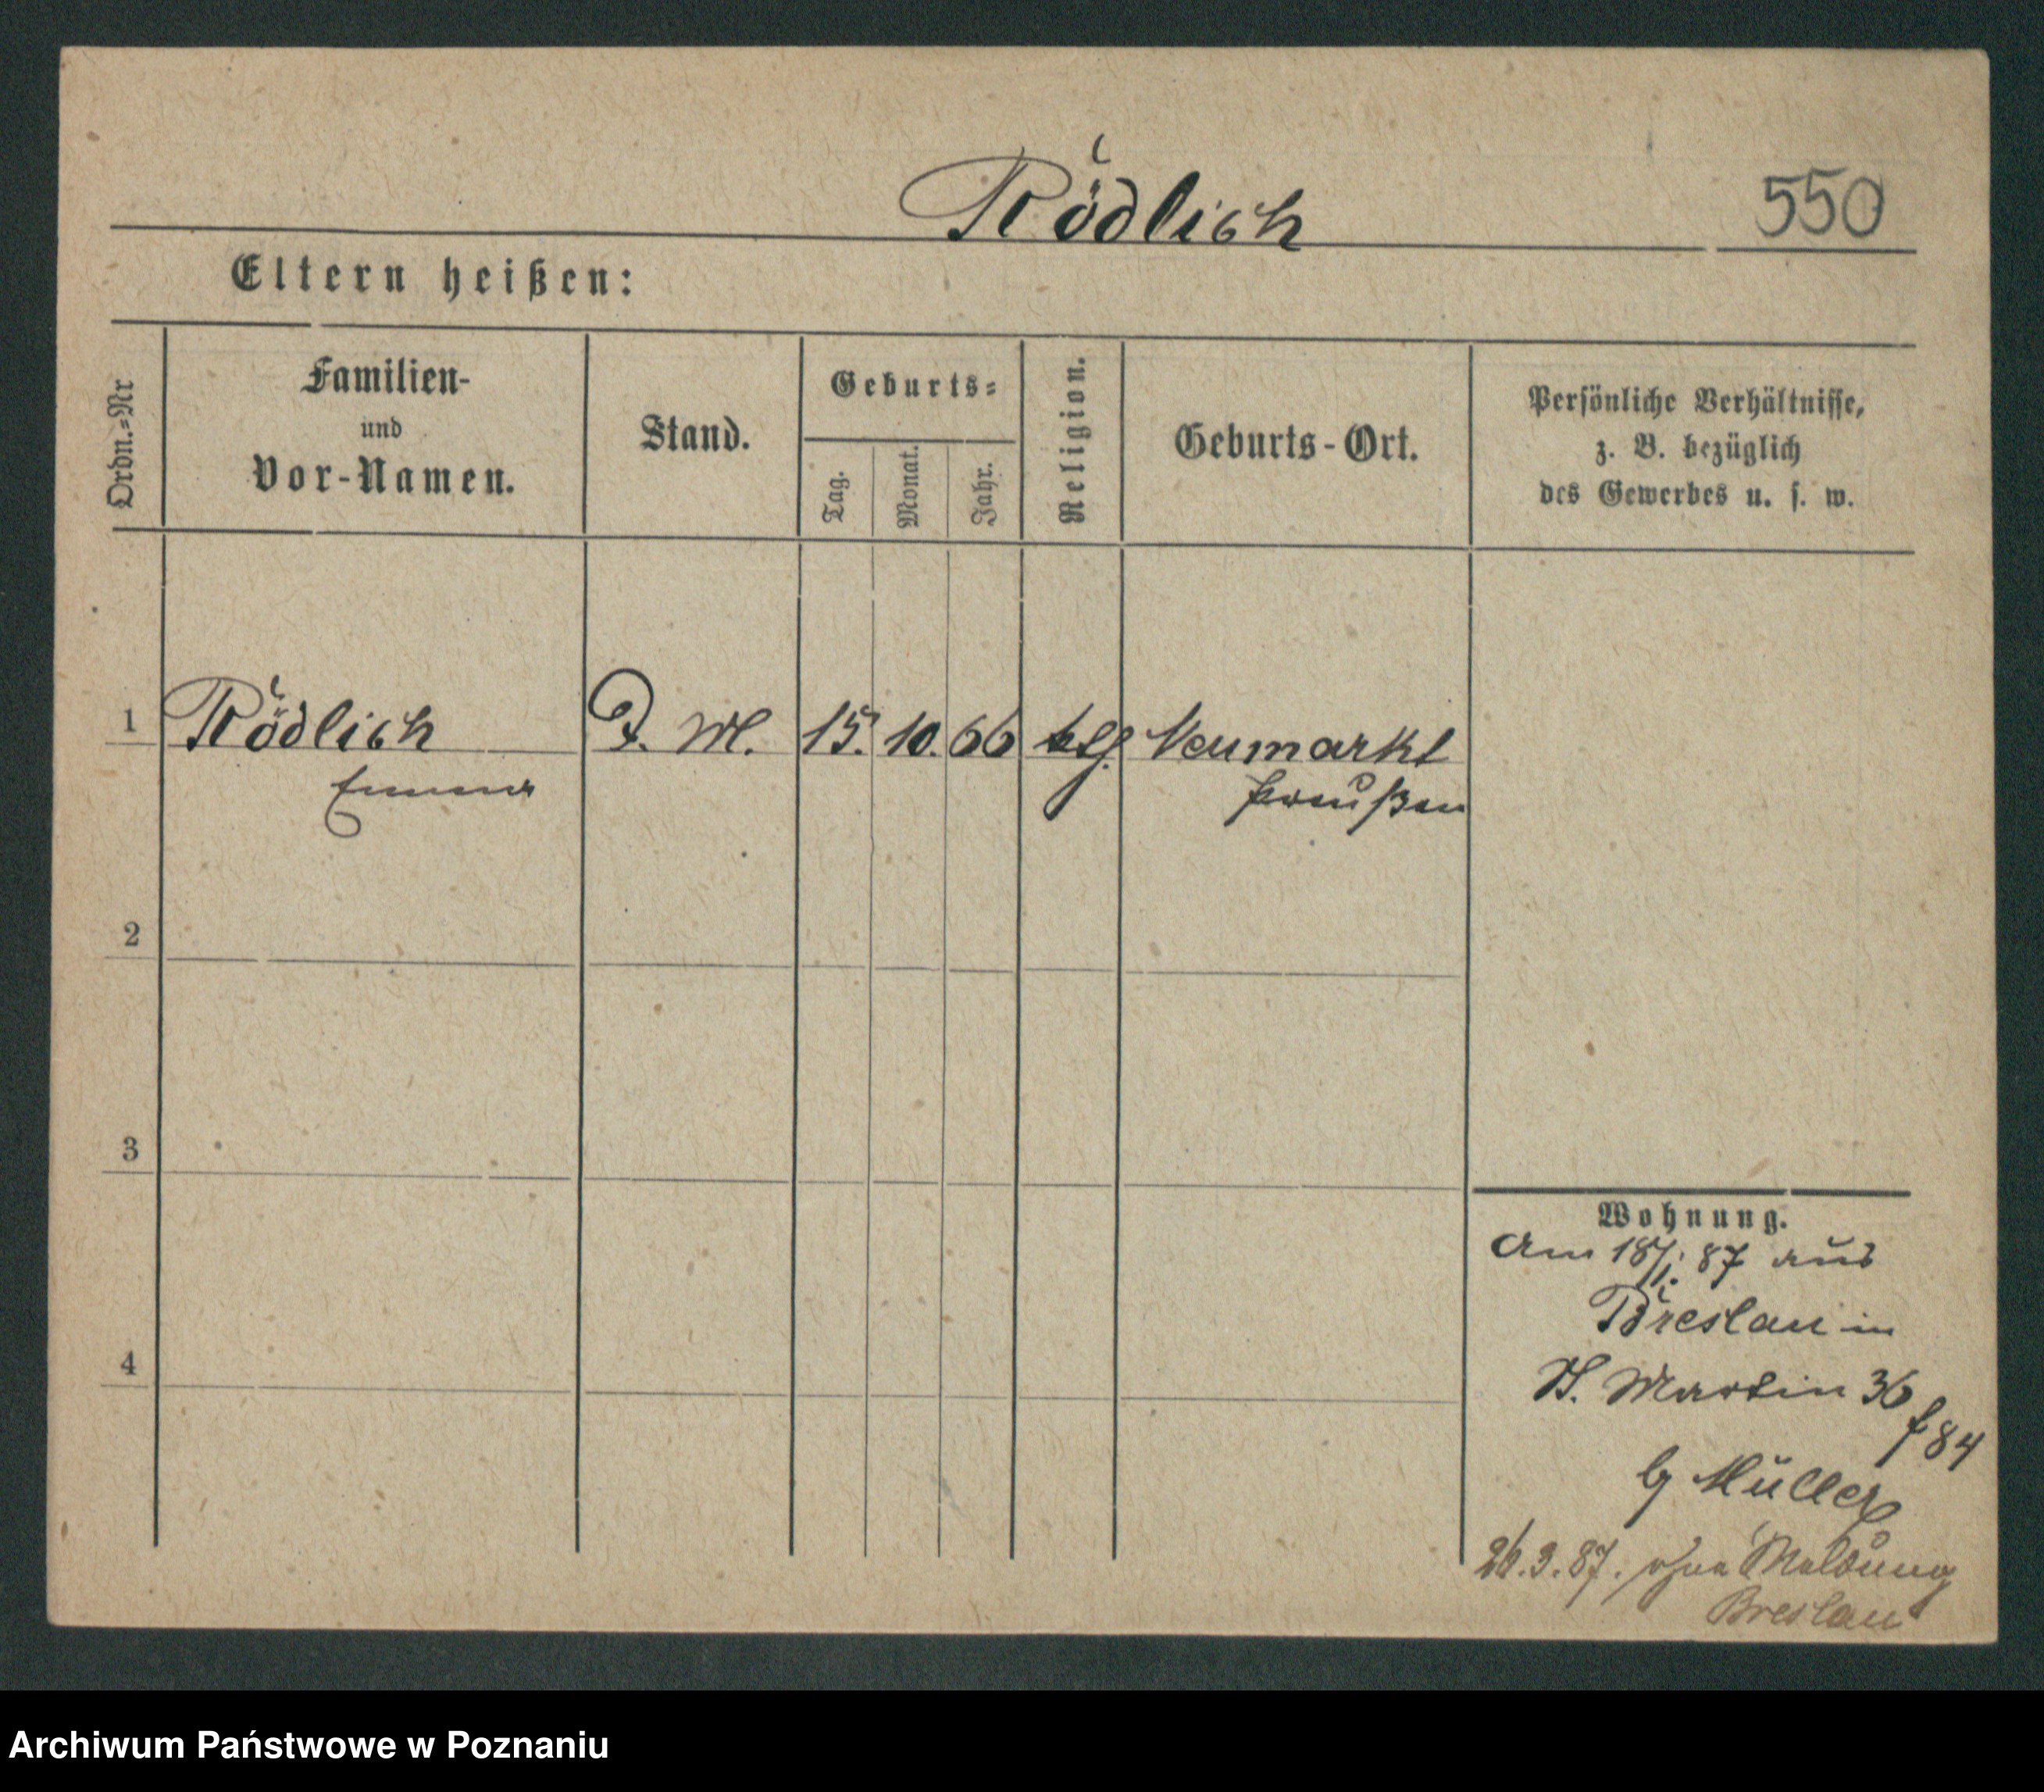 Rödlich 550
Eltern heißen:
Ordn.=Nr
Familien-
und
Vor-Namen.
Stand.
Geburts=
Tag.
Monat.
Jahr.
Religion.
Geburts-Ort.
Persönliche Verhältnisse,
z. B. bezüglich
des Gewerbes u. s. w.
1 Rödlich D. M. 15. 10. 66 Neumarkt
Emma Preußen
2
3
4
Wohnung.
Am 18/1. 87 aus
Breslau in
St. Martin 36
f 84
b/ Müller
26.3.87. ohne Meldung
Breslau
Archiwum Państwowe w Poznaniu